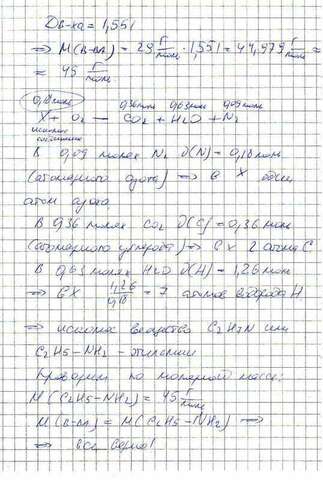 Dв-ва = 1,551
⇒ M(в-ва) = 29 г/моль · 1,551 = 44,979 г/моль ≈
≈ 45 г/моль
0,18 моль 0,36 моль 0,63 моль 0,09 моль
X + O₂ → CO₂ + H₂O + N₂
искомое
соединение
В 0,09 молях N₂ ∂(N) = 0,18 моль
(атомарного азота) ⇒ в X один
атом азота
В 0,36 молях CO₂ ∂(C) = 0,36 моль
(атомарного углерода) ⇒ в X 2 атома C
В 0,63 молях H₂O ∂(H) = 1,26 моль
⇒ в X 1,26/0,18 = 7 атомов водорода H
⇒ искомое вещество C₂H₇N или
C₂H₅–NH₂ – этиламин
Проверим по молярной массе:
M(C₂H₅–NH₂) = 45 г/моль
M(в-ва) = M(C₂H₅–NH₂) ⇒
⇒ все верно!